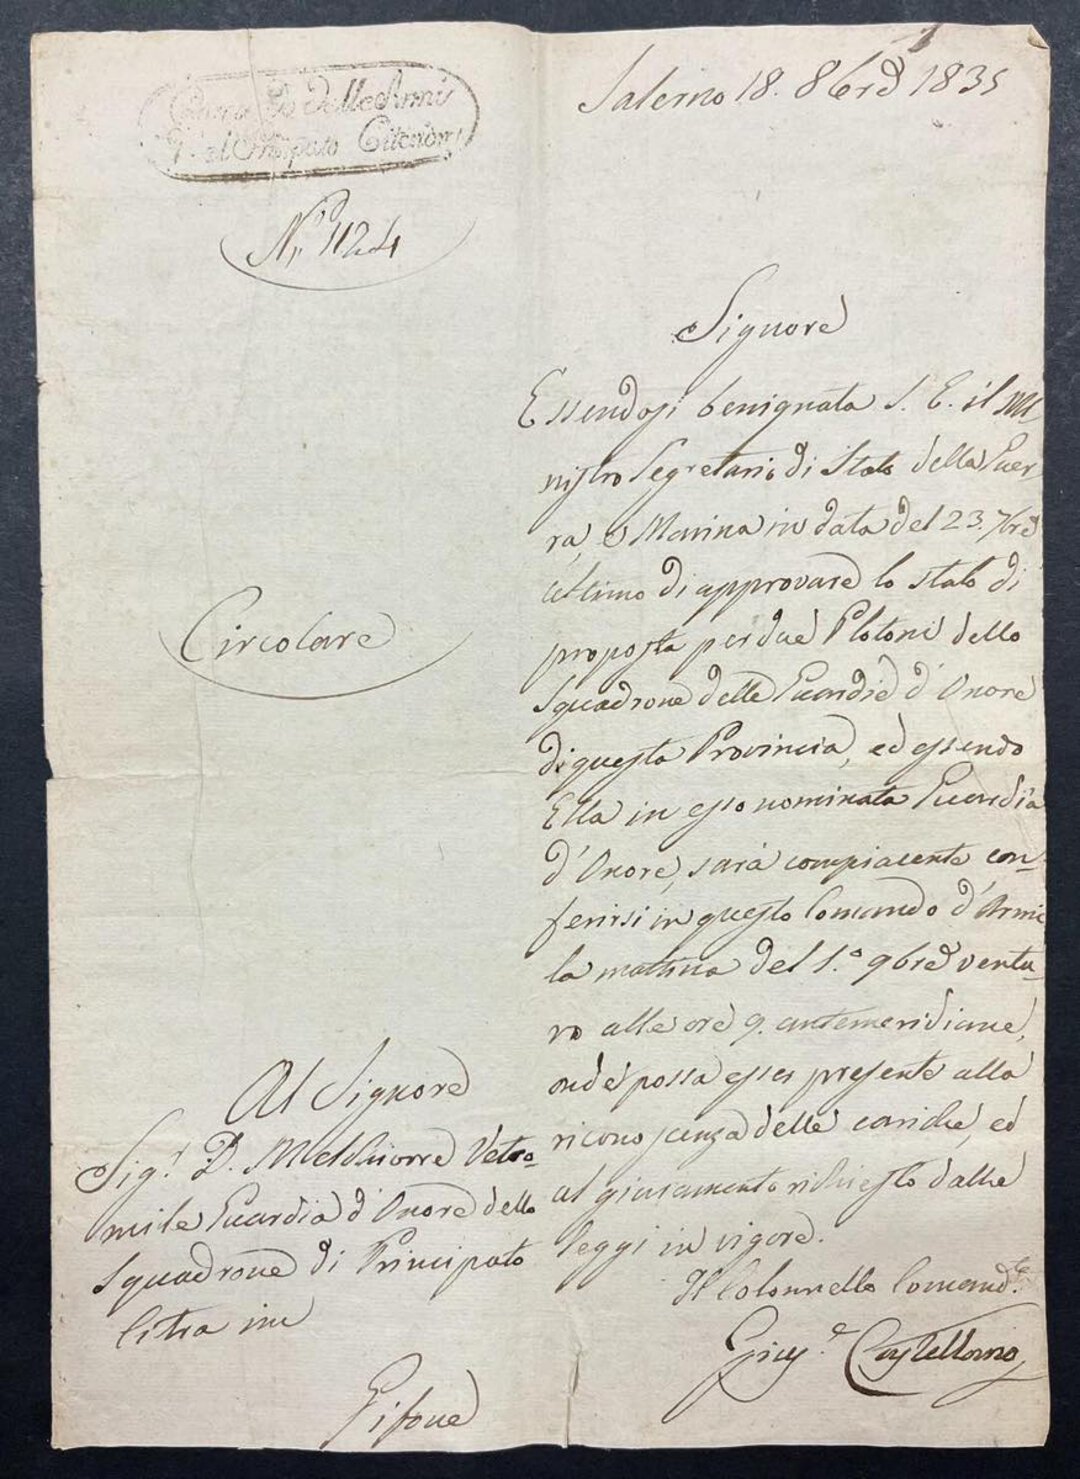 Salerno 18. 8bre 1835
delle Armi
Principato Citeriore
N.° 1124
Signore
Circolare
Essendosi benignata S. E. il Mi-
nistro Segretario di Stato della Guer-
ra, e Marina in data del 23. 7bre
ultimo di approvare lo stato di
proposta per due Plotoni dello
Squadrone delle Guardie d'Onore
di questa Provincia, ed essendo
Ella in esso nominata Guardia
d'Onore, sarà compiacente con-
ferirsi in questo Comando d'Armi
la mattina del 1.° 9bre ventu-
ro alle ore 9. antemeridiane,
onde possa esser presente alla
riconoscenza delle cariche, ed
al giuramento richiesto dalle
leggi in vigore.
Il Colonnello Comand.te
Gius.e Castellano
Al Signore
Sig.r D. Melchiorre Vetro-
mile Guardia d'Onore dello
Squadrone di Principato
Citra in
Gifone